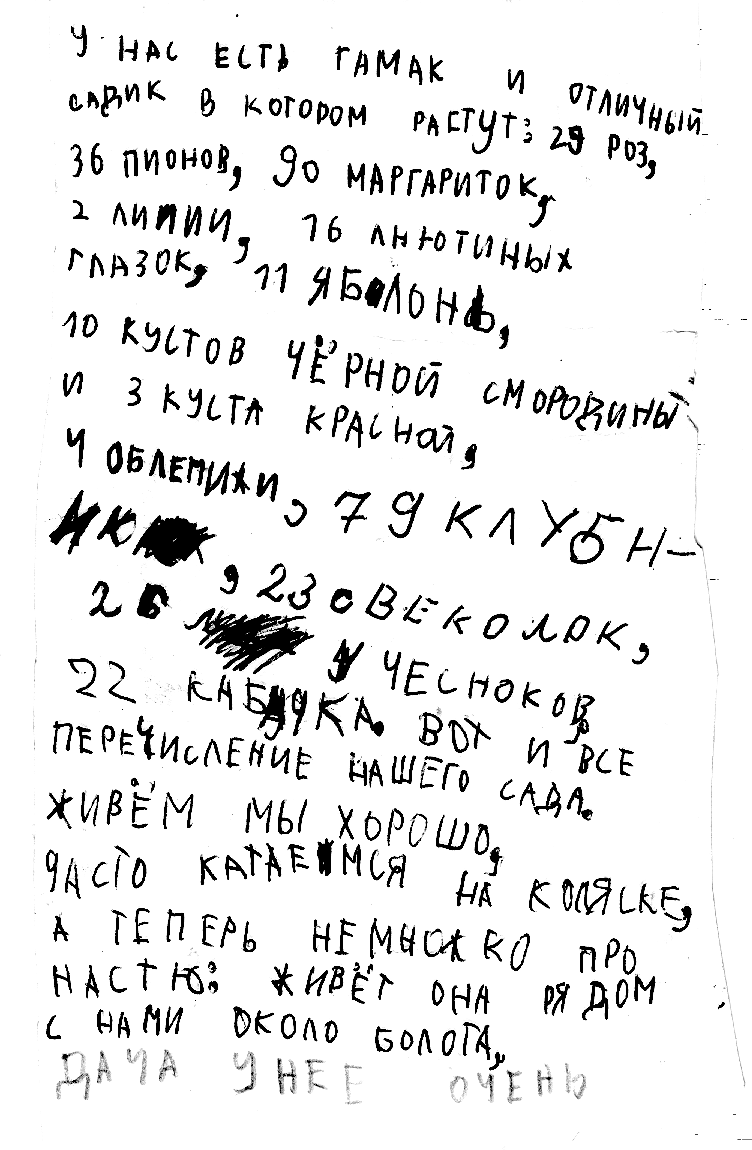 У НАС ЕСТЬ ГАМАК И ОТЛИЧНЫЙ
САДИК В КОТОРОМ РАСТУТ: 29 РОЗ,
36 ПИОНОВ, 90 МАРГАРИТОК,
2 ЛИЛИИ, 16 АНЮТИНЫХ
ГЛАЗОК, 11 ЯБЛОНЬ,
10 КУСТОВ ЧЁРНОЙ СМОРОДИНЫ
И 3 КУСТА КРАСНОЙ,
4 ОБЛЕПИХИ, 79 КЛУБН-
ИК, 23 СВЕКОЛОК,
26 ЧЕСНОКОВ,
22 КАБАЧКА. ВОТ И ВСЕ
ПЕРЕЧИСЛЕНИЕ НАШЕГО САДА.
ЖИВЁМ МЫ ХОРОШО,
ЧАСТО КАТАЕМСЯ НА КОЛЯСКЕ,
А ТЕПЕРЬ НЕМНОЖКО ПРО
НАСТЮ: ЖИВЁТ ОНА РЯДОМ
С НАМИ ОКОЛО БОЛОТА,
ДАЧА У НЕЕ ОЧЕНЬ